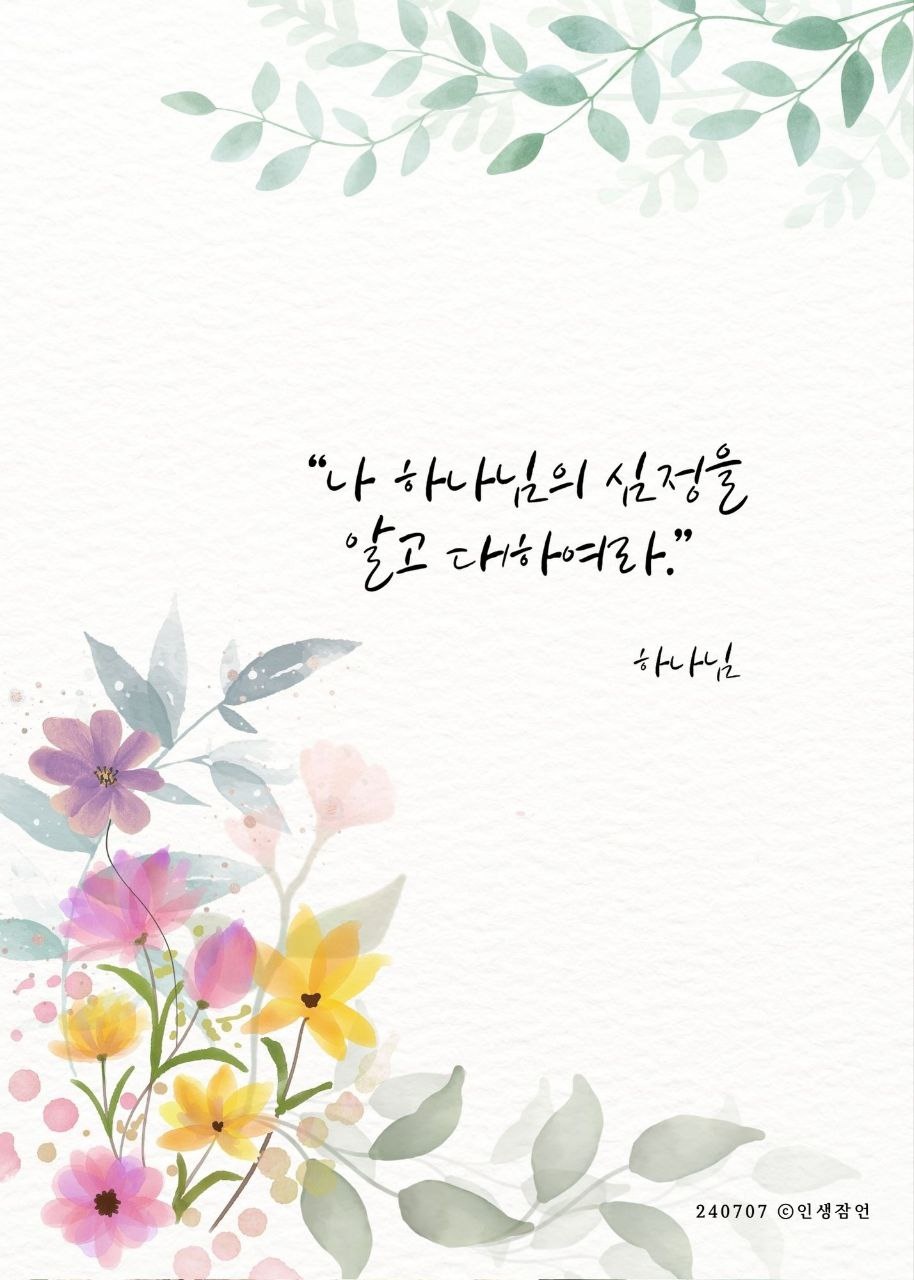 “나 하나님의 심정을
알고 대하여라.”
하나님
240707 ⓒ인생잠언